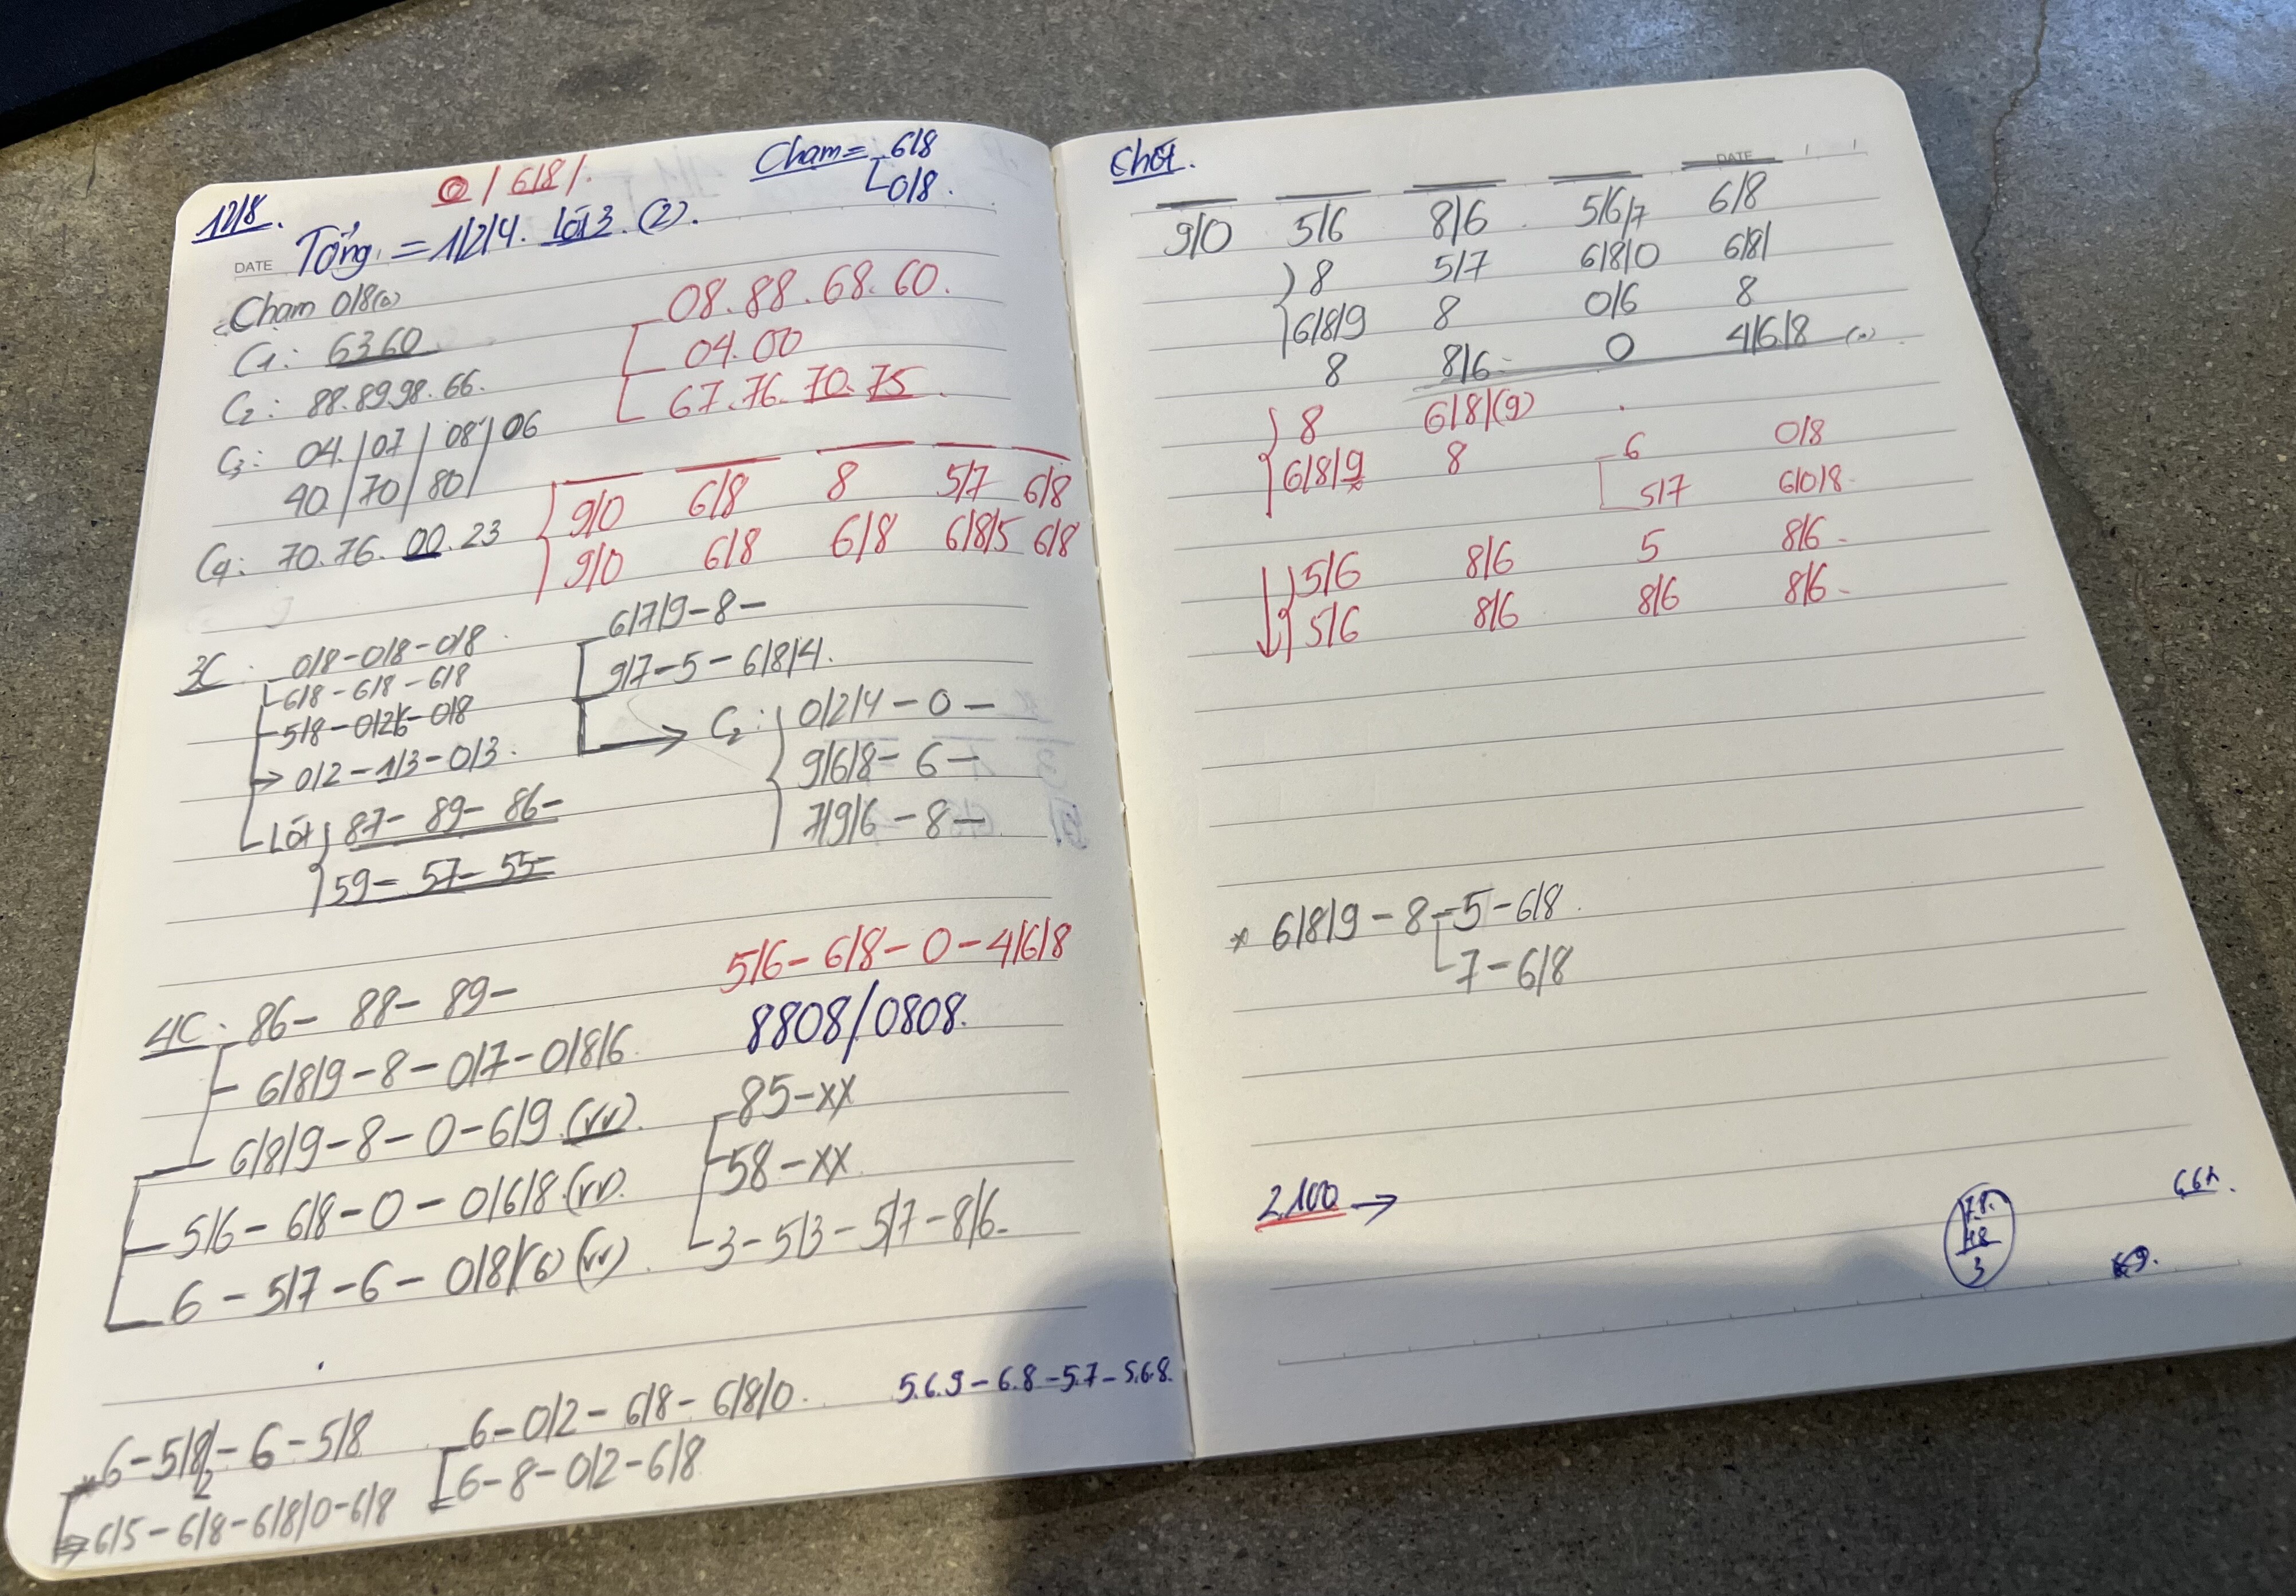 12/8.
0 / 6/8 /.
Chạm = 6/8
0/8.
Tổng = 1/2/4. Lót 3. (2).
DATE
Chạm 0/8
C1: 6360
C2: 88.89.98.66.
C3: 04. / 07 / 08 / 06
40 / 70 / 80 /
C4: 70.76.00.23
08.88.68.60.
04.00
67.76.70.75.
9/0 6/8 8 5/7 6/8
9/0 6/8 6/8 6/8/5 6/8
3C: 0/8-0/8-0/8.
6/8-6/8-6/8
5/8-0/2/6-0/8
→ 0/2-1/3-0/3.
Lót 87- 89- 86-
59- 57- 55-
6/7/9-8-
9/7-5-6/8/4.
→ C2: 0/2/4-0-
9/6/8-6-
7/9/6-8-
4C: 86- 88- 89-
6/8/9-8-0/7-0/8/6.
6/8/9-8-0-6/9 (vv).
5/6-6/8-0-0/6/8.(vv).
6-5/7-6-0/8/(6) (vv).
5/6-6/8-0-4/6/8
8808/0808.
85-xx
58-xx
3-5/3-5/7-8/6-
6-5/8/2-6-5/8
6/5-6/8-6/8/0-6/8
6-0/2-6/8-6/8/0.
6-8-0/2-6/8
5.6.9-6.8-5.7-5.6.8.
Chốt.
DATE
9/0 5/6 8/6 5/6/7 6/8
8 5/7 6/8/0 6/8/
6/8/9 8 0/6 8
8 8/6- 0 4/6/8
8 6/8/(9)
6/8/9 8 6 0/8
5/7 6/0/8-
5/6 8/6 5 8/6-
5/6 8/6 8/6 8/6-
* 6/8/9-8-5-6/8.
7-6/8
2.100 →
3